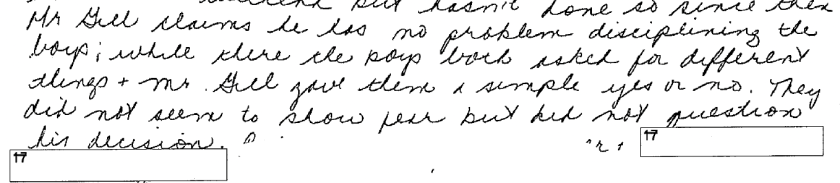 but hasn't done so since then
Mr Gill claims he has no problem disciplining the
boys; while there the boys both asked for different
things + Mr. Gill gave them a simple yes or no. They
did not seem to show fear but did not question
his decision.
17
17